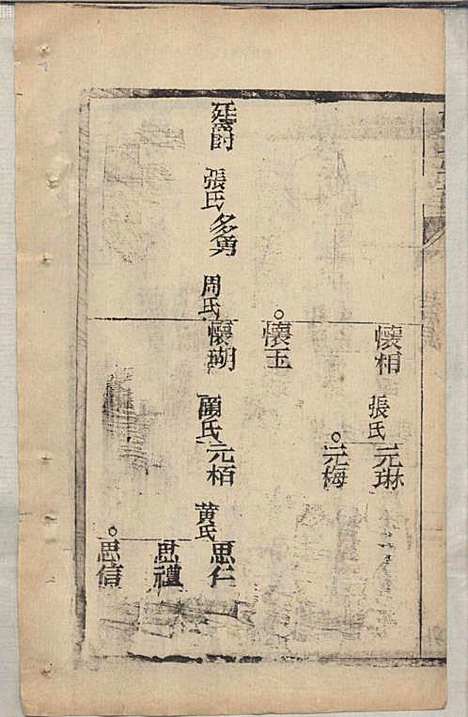 懷相
張氏
元琳
元梅
懷玉
廷爵
張氏
多勇
周氏
懷瑚
顧氏
元栢
黃氏
思仁
思禮
思信